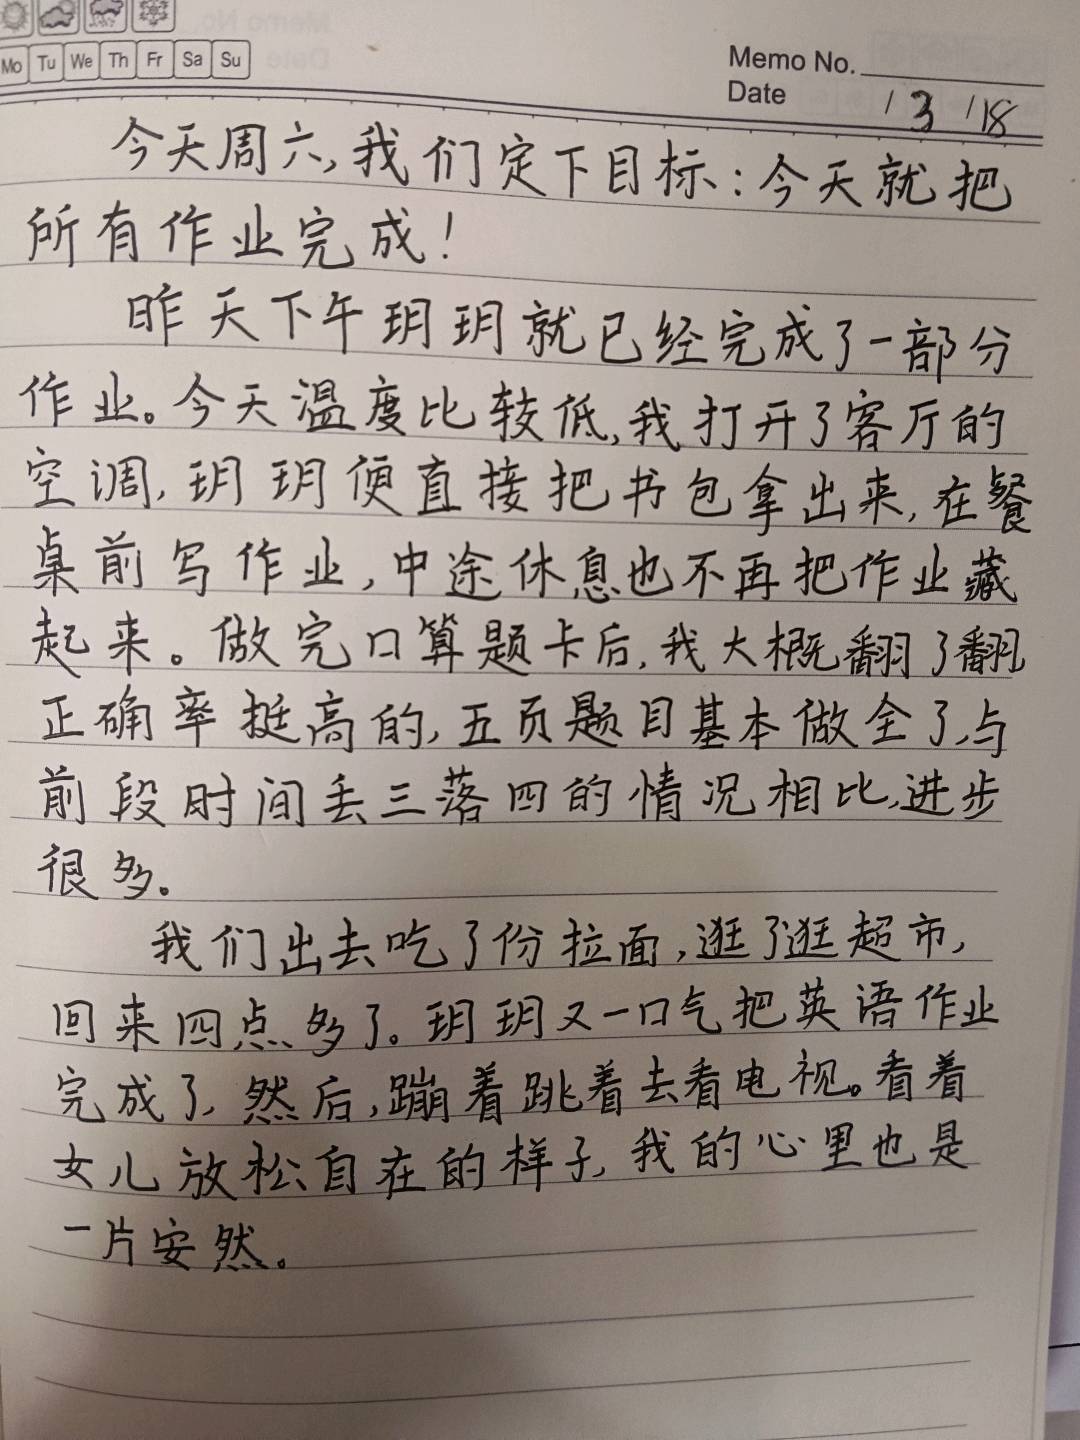 Mo Tu We Th Fr Sa Su
Memo No.
Date / 3 / 18
今天周六,我们定下目标:今天就把
所有作业完成!
昨天下午玥玥就已经完成了一部分
作业。今天温度比较低,我打开了客厅的
空调,玥玥便直接把书包拿出来,在餐
桌前写作业,中途休息也不再把作业藏
起来。做完口算题卡后,我大概翻了翻
正确率挺高的,五页题目基本做全了,与
前段时间丢三落四的情况相比,进步
很多。
我们出去吃了份拉面,逛了逛超市,
回来四点多了。玥玥又一口气把英语作业
完成了,然后,蹦着跳着去看电视。看着
女儿放松自在的样子,我的心里也是
一片安然。